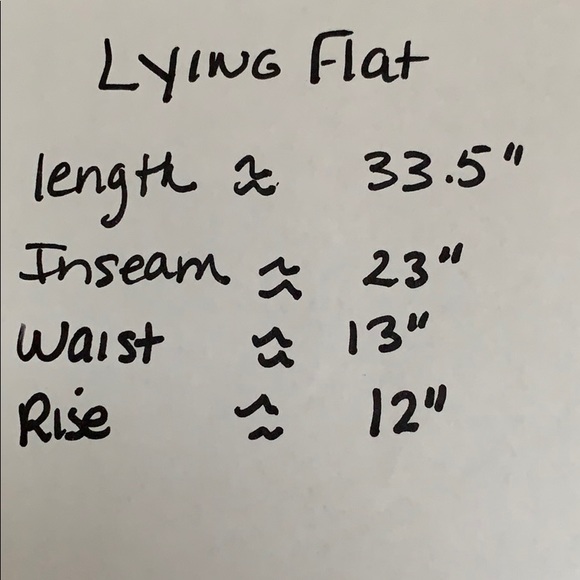 Lying Flat
length ≈ 33.5"
Inseam ≈ 23"
Waist ≈ 13"
Rise ≈ 12"